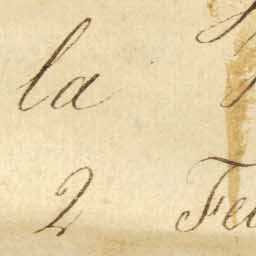 la
2 Fe